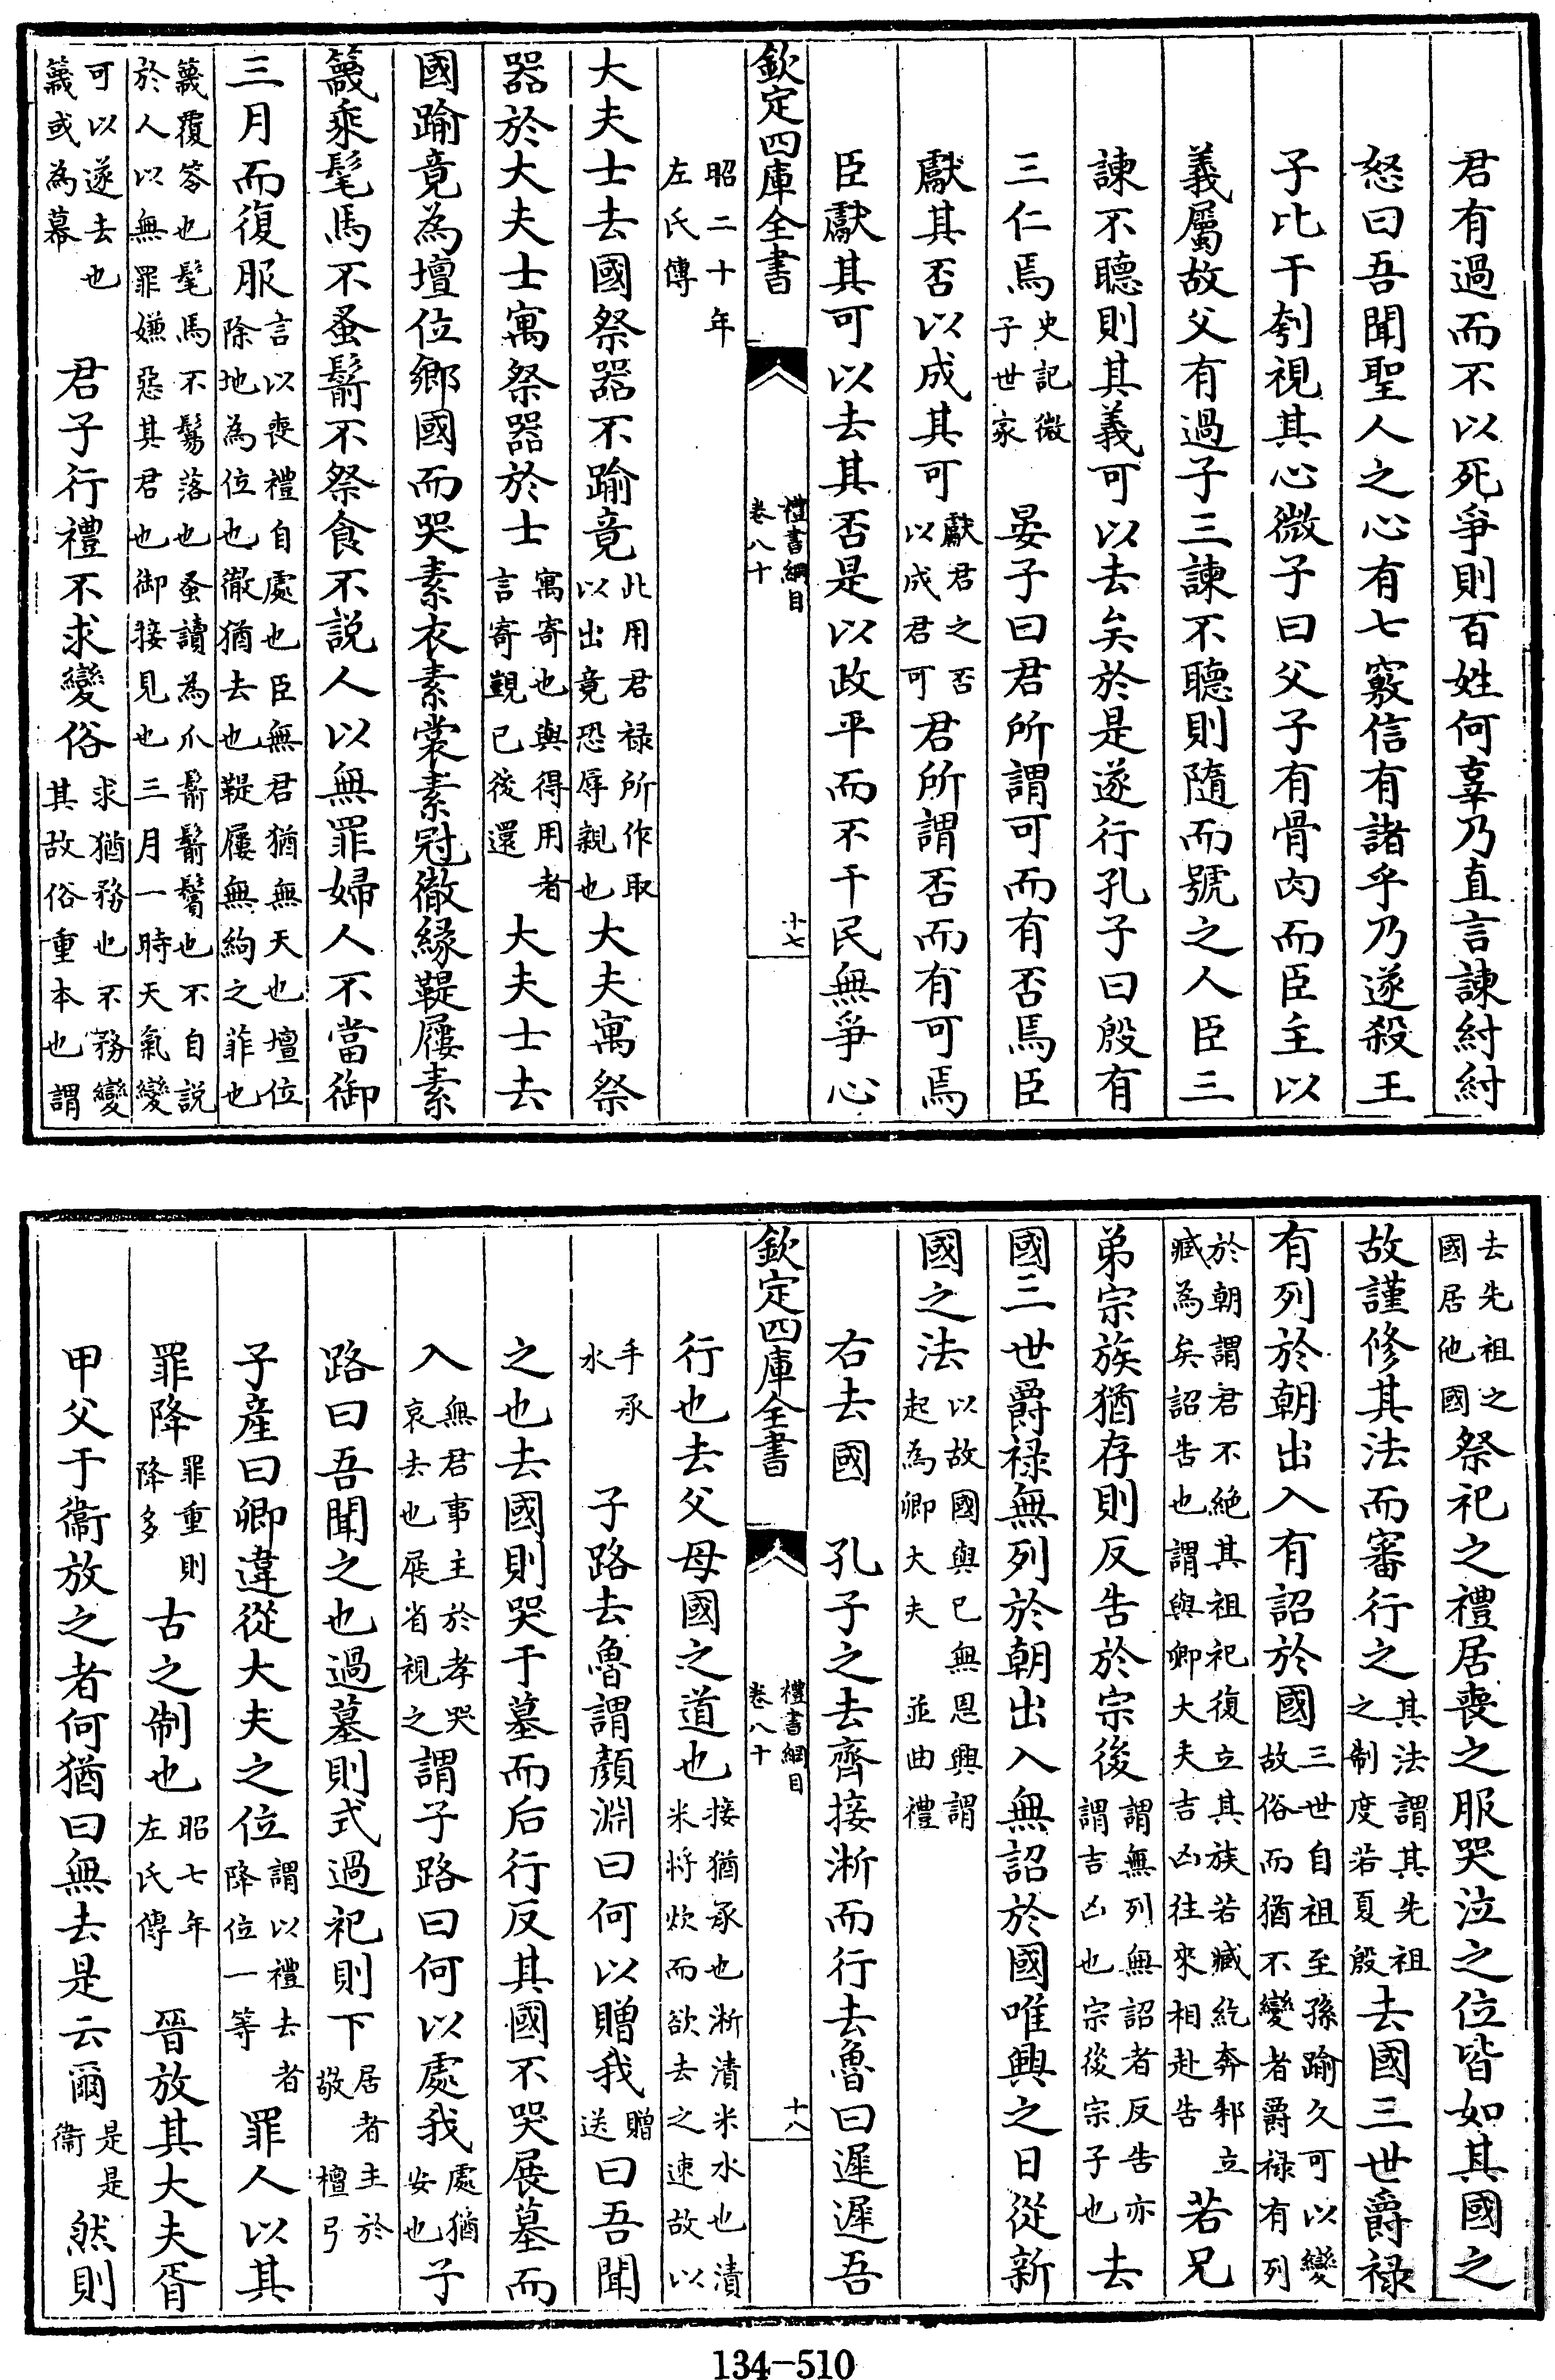 君有過而不以死爭則百姓何辜乃直言諫紂紂
怒曰吾聞聖人之心有七竅信有諸乎乃遂殺王
子比干刳視其心微子曰父子有骨肉而臣主以
義屬故父有過子三諫不聽則隨而號之人臣三
諫不聽則其義可以去矣於是遂行孔子曰殷有
三仁焉史記微子世家 晏子曰君所謂可而有否焉臣
獻其否以成其可獻君之否以成君可君所謂否而有可焉
臣獻其可以去其否是以政平而不干民無爭心
欽定四庫全書 禮書綱目卷八十 十七
昭二十年左氏傳
大夫士去國祭器不踰竟此用君祿所作取以出竟恐辱親也大夫寓祭
器於大夫士寓祭器於士寓寄也與得用者言寄覬已後還大夫士去
國踰竟為壇位鄉國而哭素衣素裳素冠徹緣鞮屨素
簚乘髦馬不蚤鬋不祭食不說人以無罪婦人不當御
三月而復服言以喪禮自處也臣無君猶無天也壇位除地為位也徹猶去也鞮屨無絇之菲也
簚覆笭也髦馬不鬄落也蚤讀為爪鬋鬋鬢也不自說於人以無罪嫌惡其君也御接見也三月一時天氣變
可以遂去也簚或為幕 君子行禮不求變俗求猶務也不務變其故俗重本也謂
去先祖之國居他國祭祀之禮居喪之服哭泣之位皆如其國之
故謹修其法而審行之其法謂其先祖之制度若夏殷去國三世爵祿
有列於朝出入有詔於國三世自祖至孫踰久可以變故俗而猶不變者爵祿有列
於朝謂君不絕其祖祀復立其族若臧紇奔邾立臧為矣詔告也謂與卿大夫吉凶往來相赴告若兄
弟宗族猶存則反告於宗後謂無列無詔者反告亦謂吉凶也宗後宗子也去
國三世爵祿無列於朝出入無詔於國唯興之日從新
國之法以故國與已無恩興謂起為卿大夫 並曲禮
右去國 孔子之去齊接淅而行去魯曰遲遲吾
欽定四庫全書 禮書綱目卷八十 十八
行也去父母國之道也接猶承也淅漬米水也漬米將炊而欲去之速故以
手承水 子路去魯謂顏淵曰何以贈我贈送曰吾聞
之也去國則哭于墓而后行反其國不哭展墓而
入無君事主於孝哭哀去也展省視之謂子路曰何以處我處猶安也子
路曰吾聞之也過墓則式過祀則下居者主於敬 檀弓
子產曰卿違從大夫之位謂以禮去者降位一等罪人以其
罪降罪重則降多古之制也昭七年左氏傳 晉放其大夫胥
甲父于衞放之者何猶曰無去是云爾是是衞然則
134-510